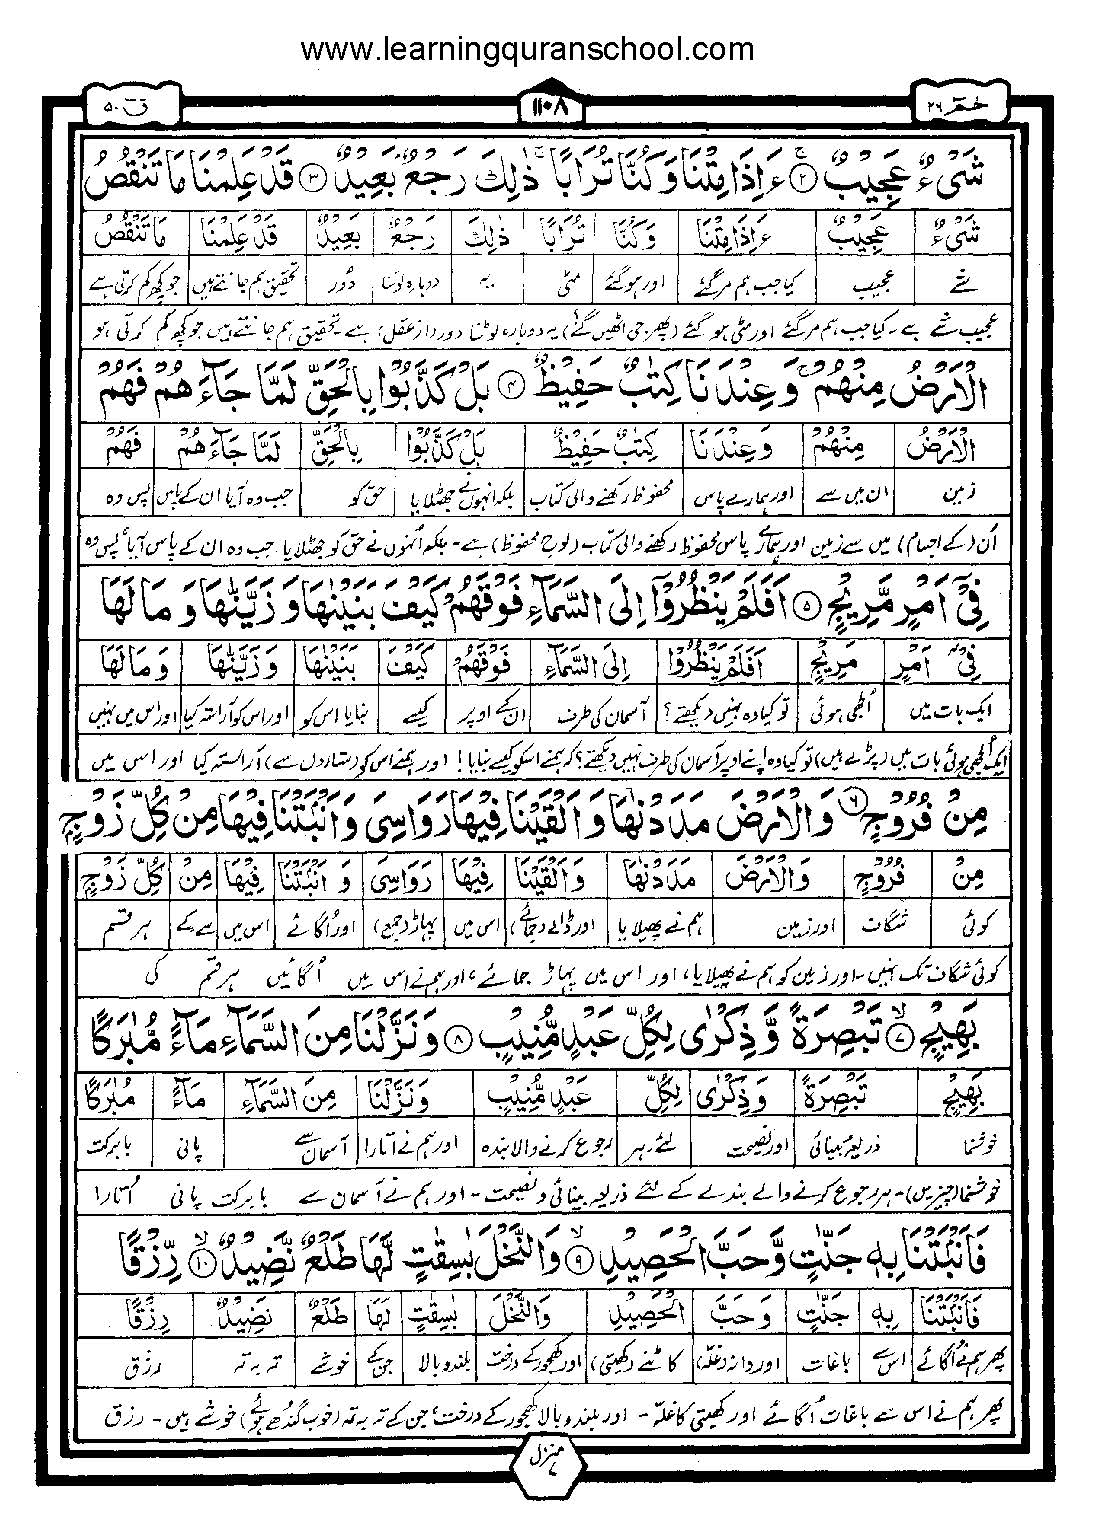 www.learningquranschool.com
قٓ ۵۰
۱۱۰۸
حٰمٓ ۲۶
شَیْءٌ عَجِیْبٌ ۚ﴿۲﴾ ءَاِذَا مِتْنَا وَ كُنَّا تُرَابًا ۚ ذٰلِكَ رَجْعٌۢ بَعِیْدٌ ﴿۳﴾ قَدْ عَلِمْنَا مَا تَنْقُصُ
شَیْءٌ عَجِیْبٌ ءَاِذَا مِتْنَا وَ كُنَّا تُرَابًا ذٰلِكَ رَجْعٌۢ بَعِیْدٌ قَدْ عَلِمْنَا مَا تَنْقُصُ
شے عجیب کیا جب ہم مر گئے اور ہو گئے مٹی یہ دوبارہ لوٹنا دور تحقیق ہم جانتے ہیں جو کچھ کم کرتی ہے
عجیب شے ہے۔ کیا جب ہم مر گئے اور مٹی ہو گئے (پھر جی اٹھیں گے) یہ دوبارہ لوٹنا دور (از عقل) ہے تحقیق ہم جانتے ہیں جو کچھ کم کرتی ہے
الْاَرْضُ مِنْهُمْ ۚ وَ عِنْدَنَا كِتٰبٌ حَفِیْظٌ ﴿۴﴾ بَلْ كَذَّبُوْا بِالْحَقِّ لَمَّا جَآءَهُمْ فَهُمْ
الْاَرْضُ مِنْهُمْ وَ عِنْدَنَا كِتٰبٌ حَفِیْظٌ بَلْ كَذَّبُوْا بِالْحَقِّ لَمَّا جَآءَهُمْ فَهُمْ
زمین ان میں سے اور ہمارے پاس محفوظ رکھنے والی کتاب بلکہ انہوں نے جھٹلایا حق کو جب وہ آیا ان کے پاس پس وہ
ان (کے اجسام) میں سے زمین اور ہمارے پاس محفوظ رکھنے والی کتاب (لوح محفوظ) ہے۔ بلکہ انہوں نے حق کو جھٹلایا جب وہ ان کے پاس آیا، پس وہ
فِیْۤ اَمْرٍ مَّرِیْجٍ ﴿۵﴾ اَفَلَمْ یَنْظُرُوْۤا اِلَی السَّمَآءِ فَوْقَهُمْ كَیْفَ بَنَیْنٰهَا وَ زَیَّنّٰهَا وَ مَا لَهَا
فِیْۤ اَمْرٍ مَّرِیْجٍ اَفَلَمْ یَنْظُرُوْۤا اِلَی السَّمَآءِ فَوْقَهُمْ كَیْفَ بَنَیْنٰهَا وَ زَیَّنّٰهَا وَ مَا لَهَا
ایک بات میں الجھی ہوئی تو کیا وہ نہیں دیکھتے؟ آسمان کی طرف ان کے اوپر کیسے بنایا اس کو اور اس کو آراستہ کیا اور اس میں نہیں
ایک الجھی ہوئی بات میں (پڑے ہیں) تو کیا وہ اپنے اوپر آسمان کی طرف نہیں دیکھتے؟ کہ ہم نے اس کو کیسے بنایا! اور ہم نے اس کو (ستاروں سے) آراستہ کیا اور اس میں
مِنْ فُرُوْجٍ ﴿۶﴾ وَ الْاَرْضَ مَدَدْنٰهَا وَ اَلْقَیْنَا فِیْهَا رَوَاسِیَ وَ اَنْۢبَتْنَا فِیْهَا مِنْ كُلِّ زَوْجٍۭ
مِنْ فُرُوْجٍ وَ الْاَرْضَ مَدَدْنٰهَا وَ اَلْقَیْنَا فِیْهَا رَوَاسِیَ وَ اَنْۢبَتْنَا فِیْهَا مِنْ كُلِّ زَوْجٍۭ
کوئی شگاف اور زمین ہم نے پھیلایا اور ڈالے (جمائے) اس میں پہاڑ (جمع) اور اگائے اس میں سے۔کے ہر قسم
کوئی شگاف تک نہیں۔ اور زمین کو ہم نے پھیلایا، اور اس میں پہاڑ جمائے، اور ہم نے اس میں اگائیں ہر قسم کی
بَهِیْجٍ ۙ﴿۷﴾ تَبْصِرَةً وَّ ذِكْرٰی لِكُلِّ عَبْدٍ مُّنِیْبٍ ﴿۸﴾ وَ نَزَّلْنَا مِنَ السَّمَآءِ مَآءً مُّبٰرَكًا
بَهِیْجٍ تَبْصِرَةً وَّ ذِكْرٰی لِكُلِّ عَبْدٍ مُّنِیْبٍ وَ نَزَّلْنَا مِنَ السَّمَآءِ مَآءً مُّبٰرَكًا
خوشنما ذریعۂ بینائی اور نصیحت لئے۔ہر رجوع کرنے والا بندہ اور ہم نے اتارا آسمان سے پانی بابرکت
خوشنما (چیزیں)۔ ہر رجوع کرنے والے بندے کے لئے ذریعۂ بینائی و نصیحت۔ اور ہم نے آسمان سے بابرکت پانی اتارا
فَاَنْۢبَتْنَا بِهٖ جَنّٰتٍ وَّ حَبَّ الْحَصِیْدِ ۙ﴿۹﴾ وَ النَّخْلَ بٰسِقٰتٍ لَّهَا طَلْعٌ نَّضِیْدٌ ۙ﴿۱۰﴾ رِّزْقًا
فَاَنْۢبَتْنَا بِهٖ جَنّٰتٍ وَّ حَبَّ الْحَصِیْدِ وَ النَّخْلَ بٰسِقٰتٍ لَّهَا طَلْعٌ نَّضِیْدٌ رِّزْقًا
پھر ہم نے اگائے اس سے باغات اور دانہ (غلہ) کاٹنے (کھیتی) اور کھجور کے درخت بلند و بالا جن کے خوشے تہ بہ تہ رزق
پھر ہم نے اس سے باغات اگائے اور کھیتی کا غلہ۔ اور بلند و بالا کھجور کے درخت، جن کے تہ بہ تہ (خوب گندھے ہوئے) خوشے ہیں۔ رزق
منزل ۷